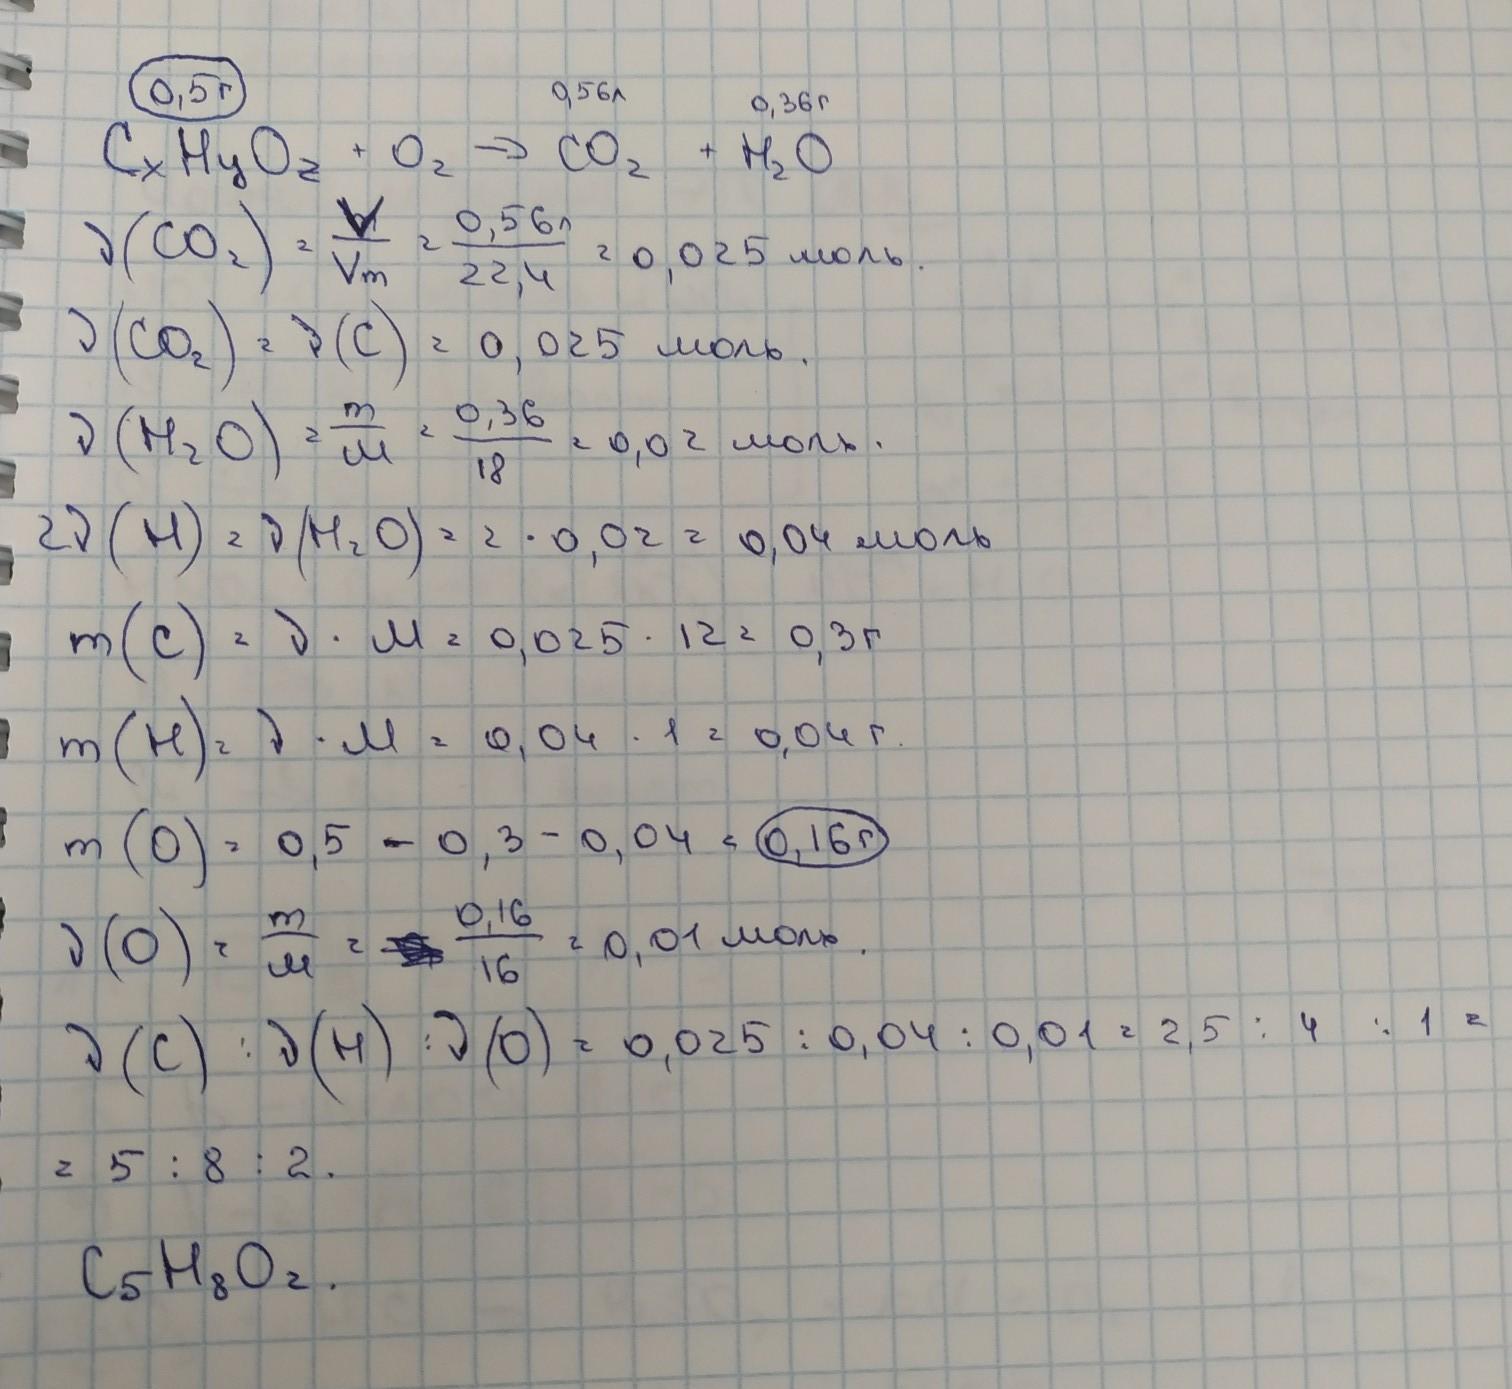 0,5г 0,56л 0,36г
CxHyOz + O₂ → CO₂ + H₂O
ν(CO₂) = V/Vm = 0,56л/22,4 = 0,025 моль.
ν(CO₂) = ν(C) = 0,025 моль.
ν(H₂O) = m/M = 0,36/18 = 0,02 моль.
2ν(H) = ν(H₂O) = 2 · 0,02 = 0,04 моль
m(C) = ν · M = 0,025 · 12 = 0,3г
m(H) = ν · M = 0,04 · 1 = 0,04г.
m(O) = 0,5 - 0,3 - 0,04 = 0,16г
ν(O) = m/M = 0,16/16 = 0,01 моль.
ν(C) : ν(H) : ν(O) = 0,025 : 0,04 : 0,01 = 2,5 : 4 : 1 =
= 5 : 8 : 2.
C₅H₈O₂.